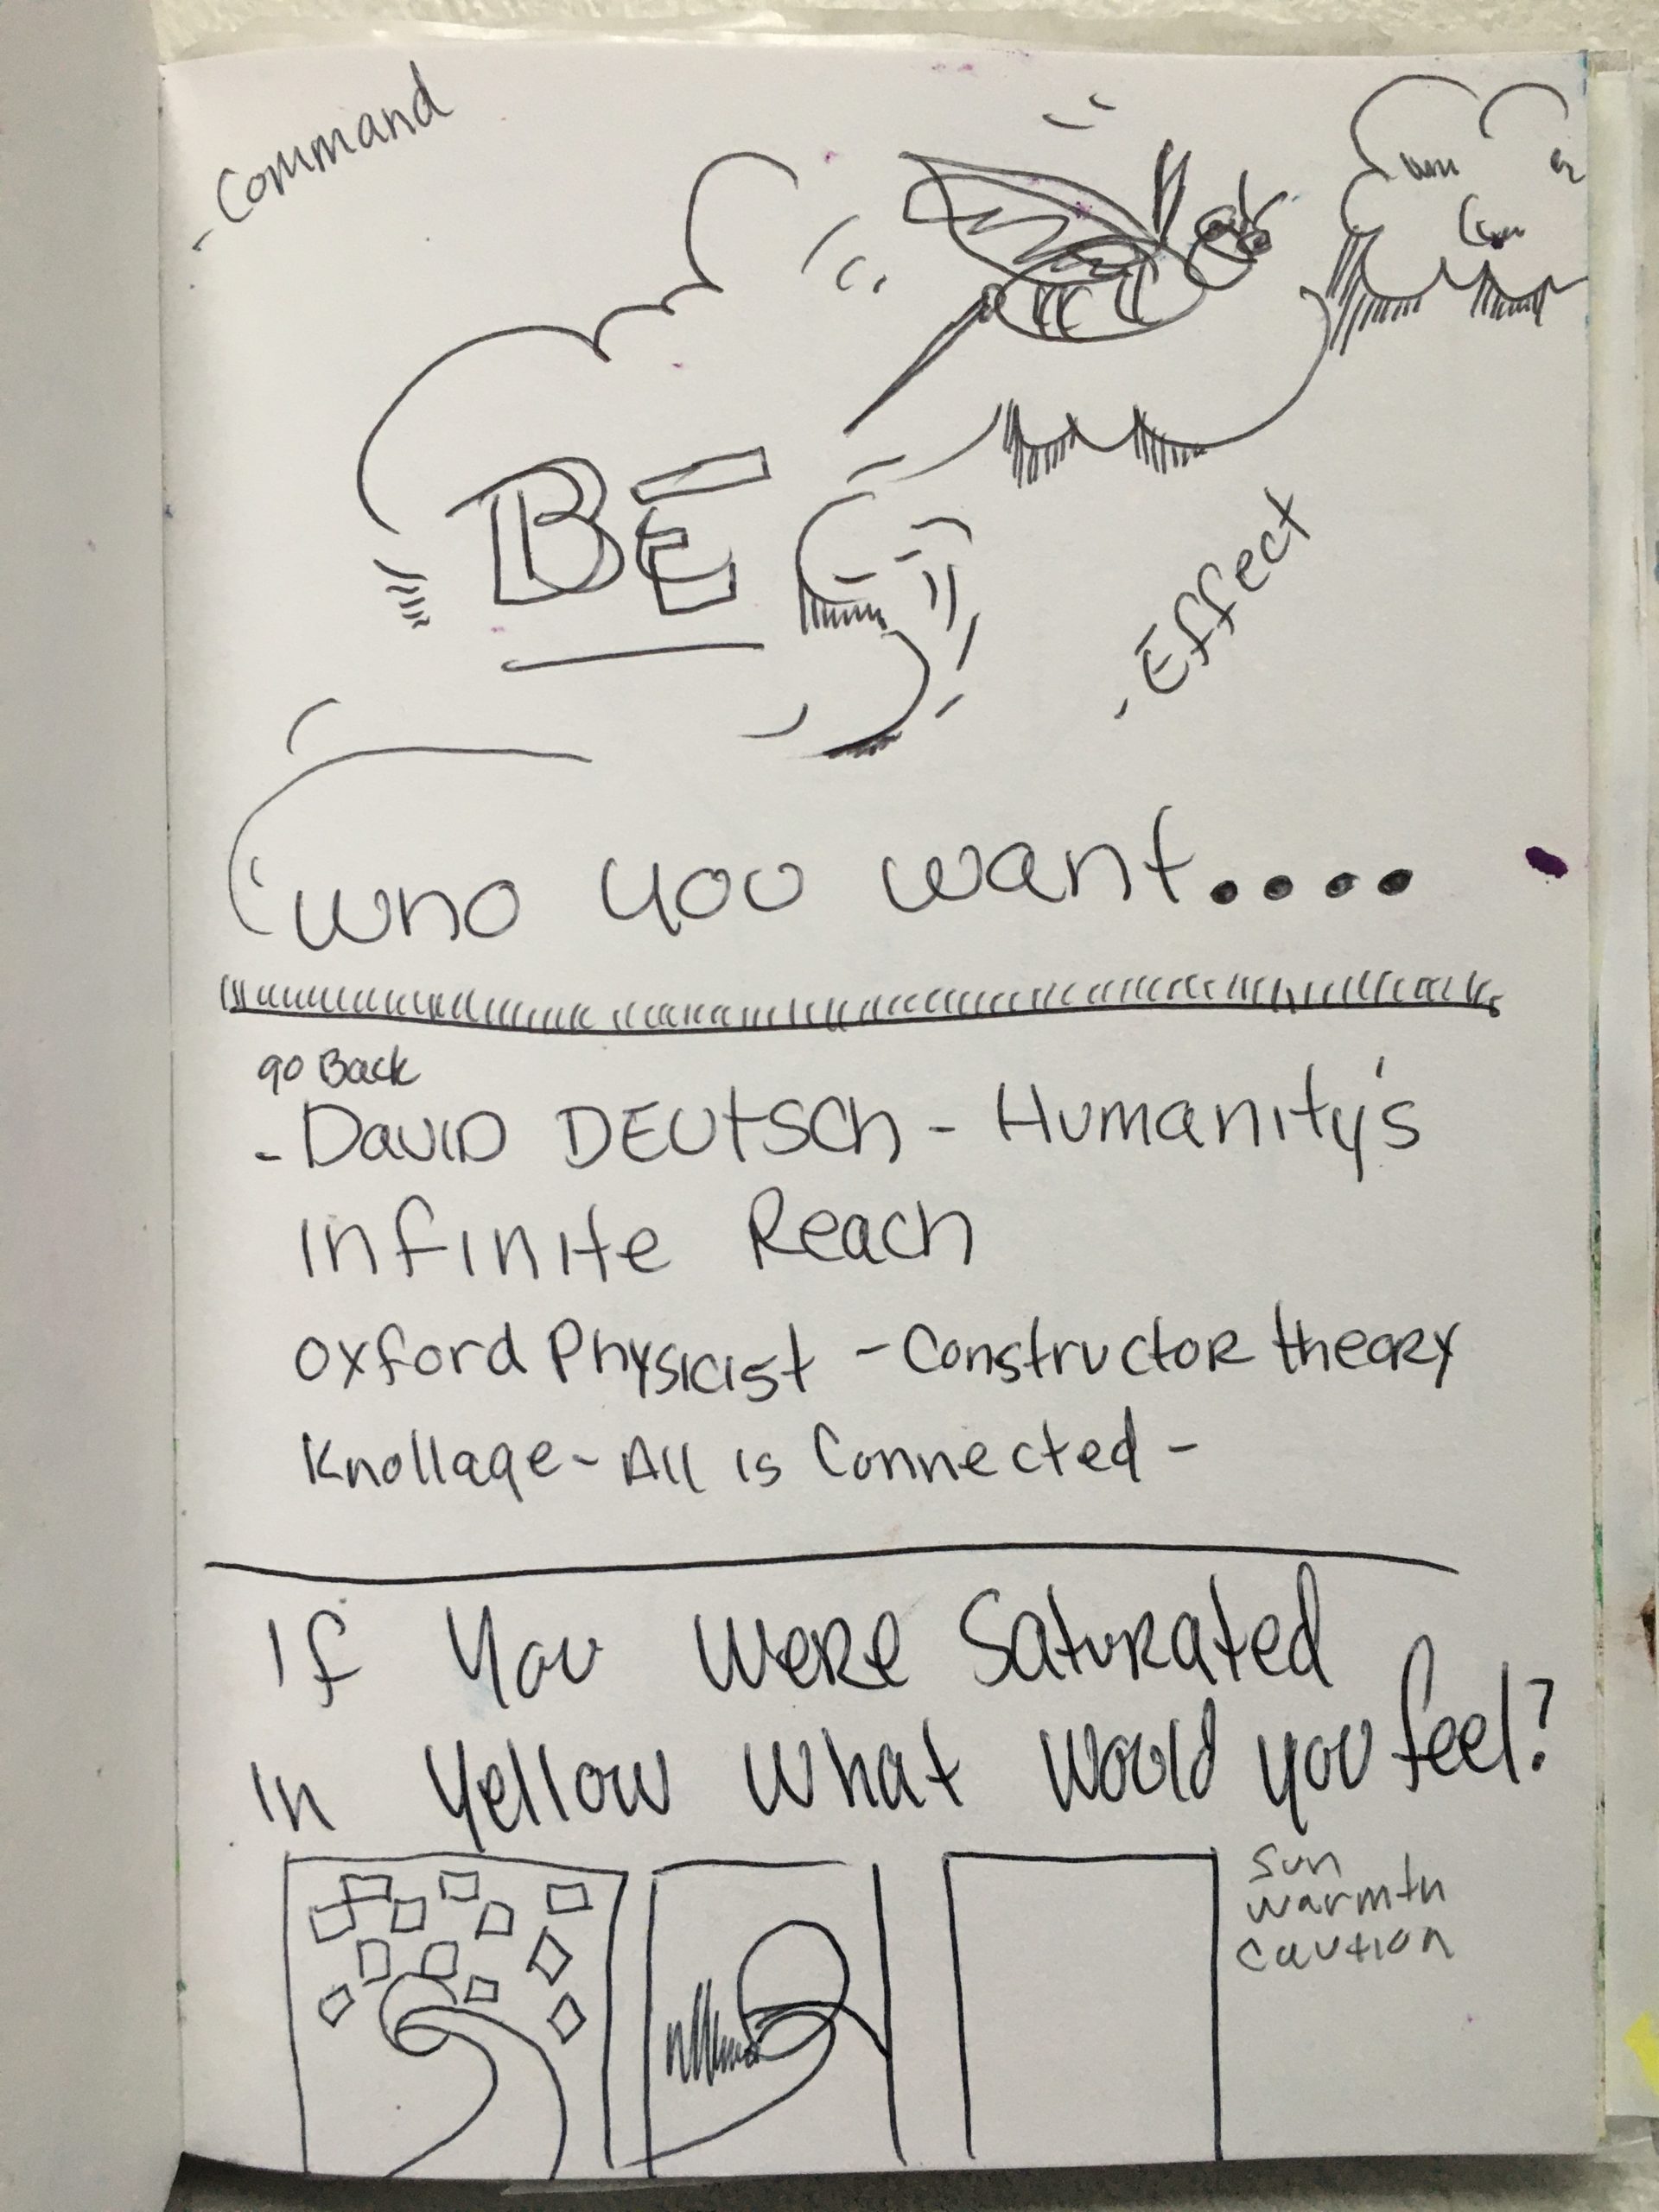 - Command
BE
- Effect
who you want....
go Back
- DaviD DEUtSCh - Humanity's
infinite Reach
Oxford Physicist - Constructor theory
Knollage - All is Connected -
If You Were Saturated
In Yellow What Would you feel?
sun
warmth
caution